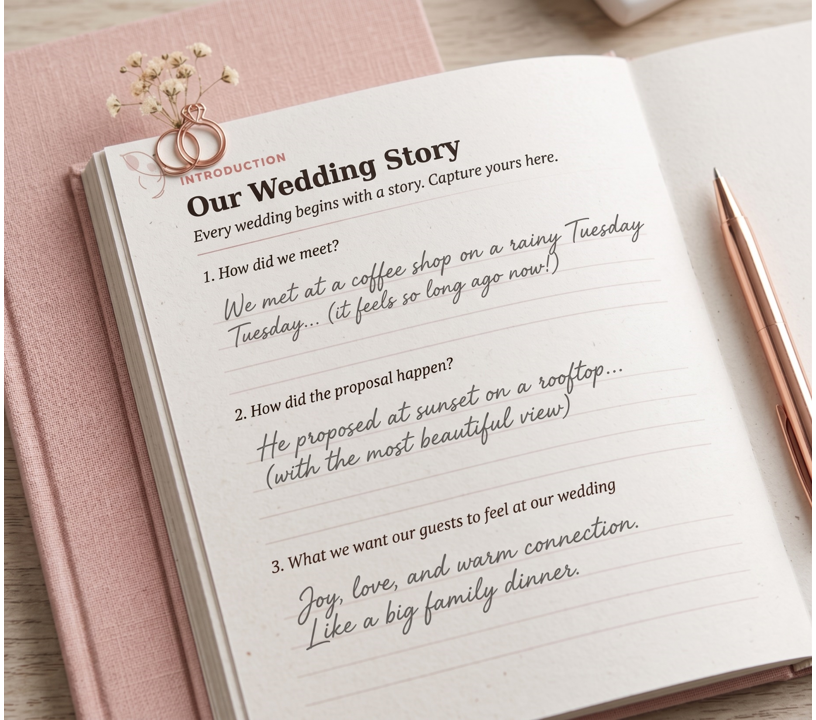 INTRODUCTION
Our Wedding Story
Every wedding begins with a story. Capture yours here.
1. How did we meet?
We met at a coffee shop on a rainy Tuesday
Tuesday... (it feels so long ago now!)
2. How did the proposal happen?
He proposed at sunset on a rooftop...
(with the most beautiful view)
3. What we want our guests to feel at our wedding
Joy, love, and warm connection.
Like a big family dinner.